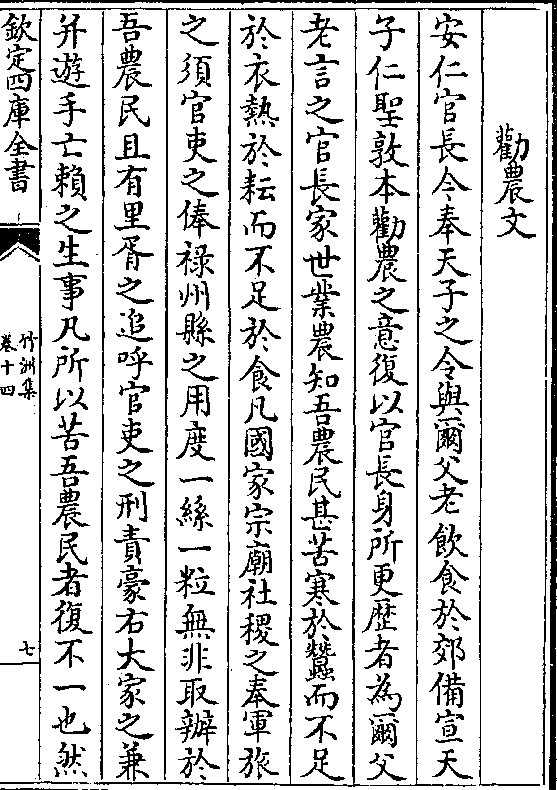 勸農文
安仁官長今奉天子之令與爾父老飲食於郊備宣天
子仁聖敦本勸農之意復以官長身所更歴者為爾父
老言之官長家世業農知吾農民甚苦寒於蠶而不足
於衣熱於耘而不足於食凡國家宗廟社稷之奉軍旅
之須官吏之俸祿州縣之用度一絲一粒無非取辦於
吾農民且有里胥之追呼官吏之刑責豪右大家之兼
并遊手亡賴之生事凡所以苦吾農民者復不一也然
欽定四庫全書
竹洲集
卷十四
七